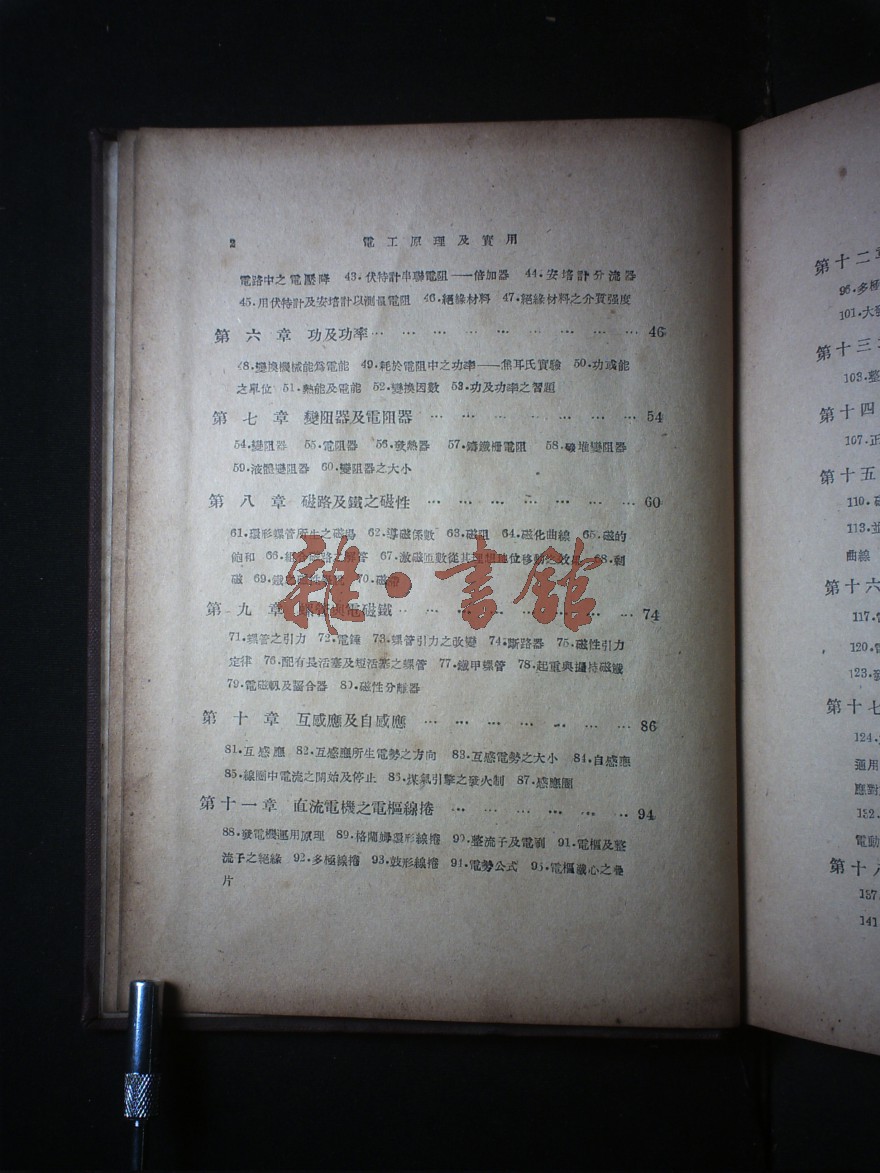 2
電工原理及實用
電路中之電壓降 43.伏特計串聯電阻——倍加器 44.安培計分流器
45.用伏特計及安培計以測量電阻 46.絕緣材料 47.絕緣材料之介質强度
第六章 功及功率… … … … … … … … 46
48.變換機械能爲電能 49.耗於電阻中之功率——焦耳氏實驗 50.功或能
之單位 51.熱能及電能 52.變換因數 53.功及功率之習題
第七章 變阻器及電阻器 … … … … … … 54
54.變阻器 55.電阻器 56.發熱器 57.鑄鐵柵電阻 58.碳堆變阻器
59.液體變阻器 60.變阻器之大小
第八章 磁路及鐵之磁性 … … … … … … 60
61.環形螺管所生之磁場 62.導磁係數 63.磁阻 64.磁化曲線 65.磁的
飽和 66. 67.激磁匝數從其理想地位移動之效果 68.剩
磁 69. 70.磁滯
第九章 螺管與電磁鐵 … … … … … … … 74
71.螺管之引力 72.電錘 73.螺管引力之改變 74.斷路器 75.磁性引力
定律 76.配有長活塞及短活塞之螺管 77.鐵甲螺管 78.起重與握持磁鐵
79.電磁軔及齧合器 80.磁性分離器
第十章 互感應及自感應 … … … … … … 86
81.互感應 82.互感應所生電勢之方向 83.互感電勢之大小 84.自感應
85.線圈中電流之開始及停止 86.煤氣引擎之發火制 87.感應圈
第十一章 直流電機之電樞線捲 … … … … … 94
88.發電機運用原理 89.格蘭姆環形線捲 90.整流子及電刷 91.電樞及整
流子之絕緣 92.多極線捲 93.鼓形線捲 94.電勢公式 95.電樞鐵心之疊
片
雜·書館
第十二章
96.多極
101.大
第十三
103.整
第十四
107.正
第十五
110.
113.並
曲線
第十六
117.
120.
123.
第十七
124.
適用
應對
132.
電動
第十八
137.
141